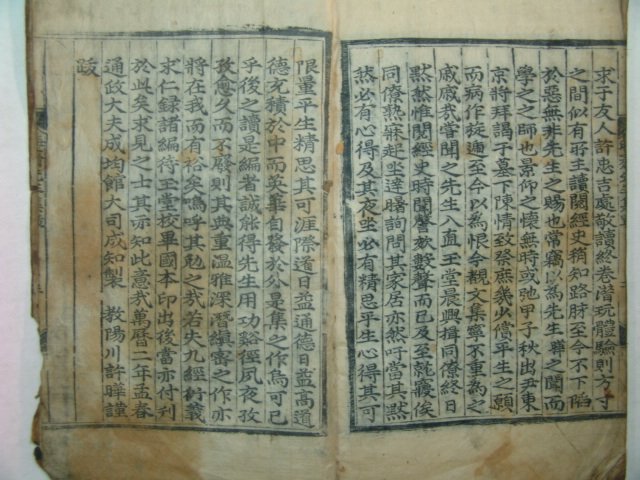 求于友人許忠吉處敬讀終卷潛玩體驗則方寸
之間似有所主讀閱經史稍知路脉至今不下陷
於惡無非先生之賜也常竊以為先生聯之聞而
學之之師也景仰之懷無時或弛甲子秋出尹東
京將拜謁于墓下陳情致發庶幾少償平生之願
而病作旋逋至今以為恨今觀文集寧不重為之
戚戚哉嘗聞之先生入直玉堂晨興揖同僚終日
默然惟閱經史時聞謦欬數聲而已及至就寢俟
同僚熟寐起坐達曙詢問其家居亦然吁當其默
然必有心得及其夜坐必有精思平生心得其可
限量平生精思其可涯際道日益通德日益高道
德充積於中而英華自發於外是集之作烏可已
乎後之讀是編者誠能得先生用功谿徑夙夜孜
孜愈久而不廢則其典重溫雅深潛縝密之作亦
將在我而有裕矣嗚呼其勉之哉若夫九經衍義
求仁錄諸編待玉堂校畢國本印出後當亦付刊
於此矣求見之士其亦知此意哉萬曆二年孟春
通政大夫成均館大司成知製 教陽川許曄謹
跋